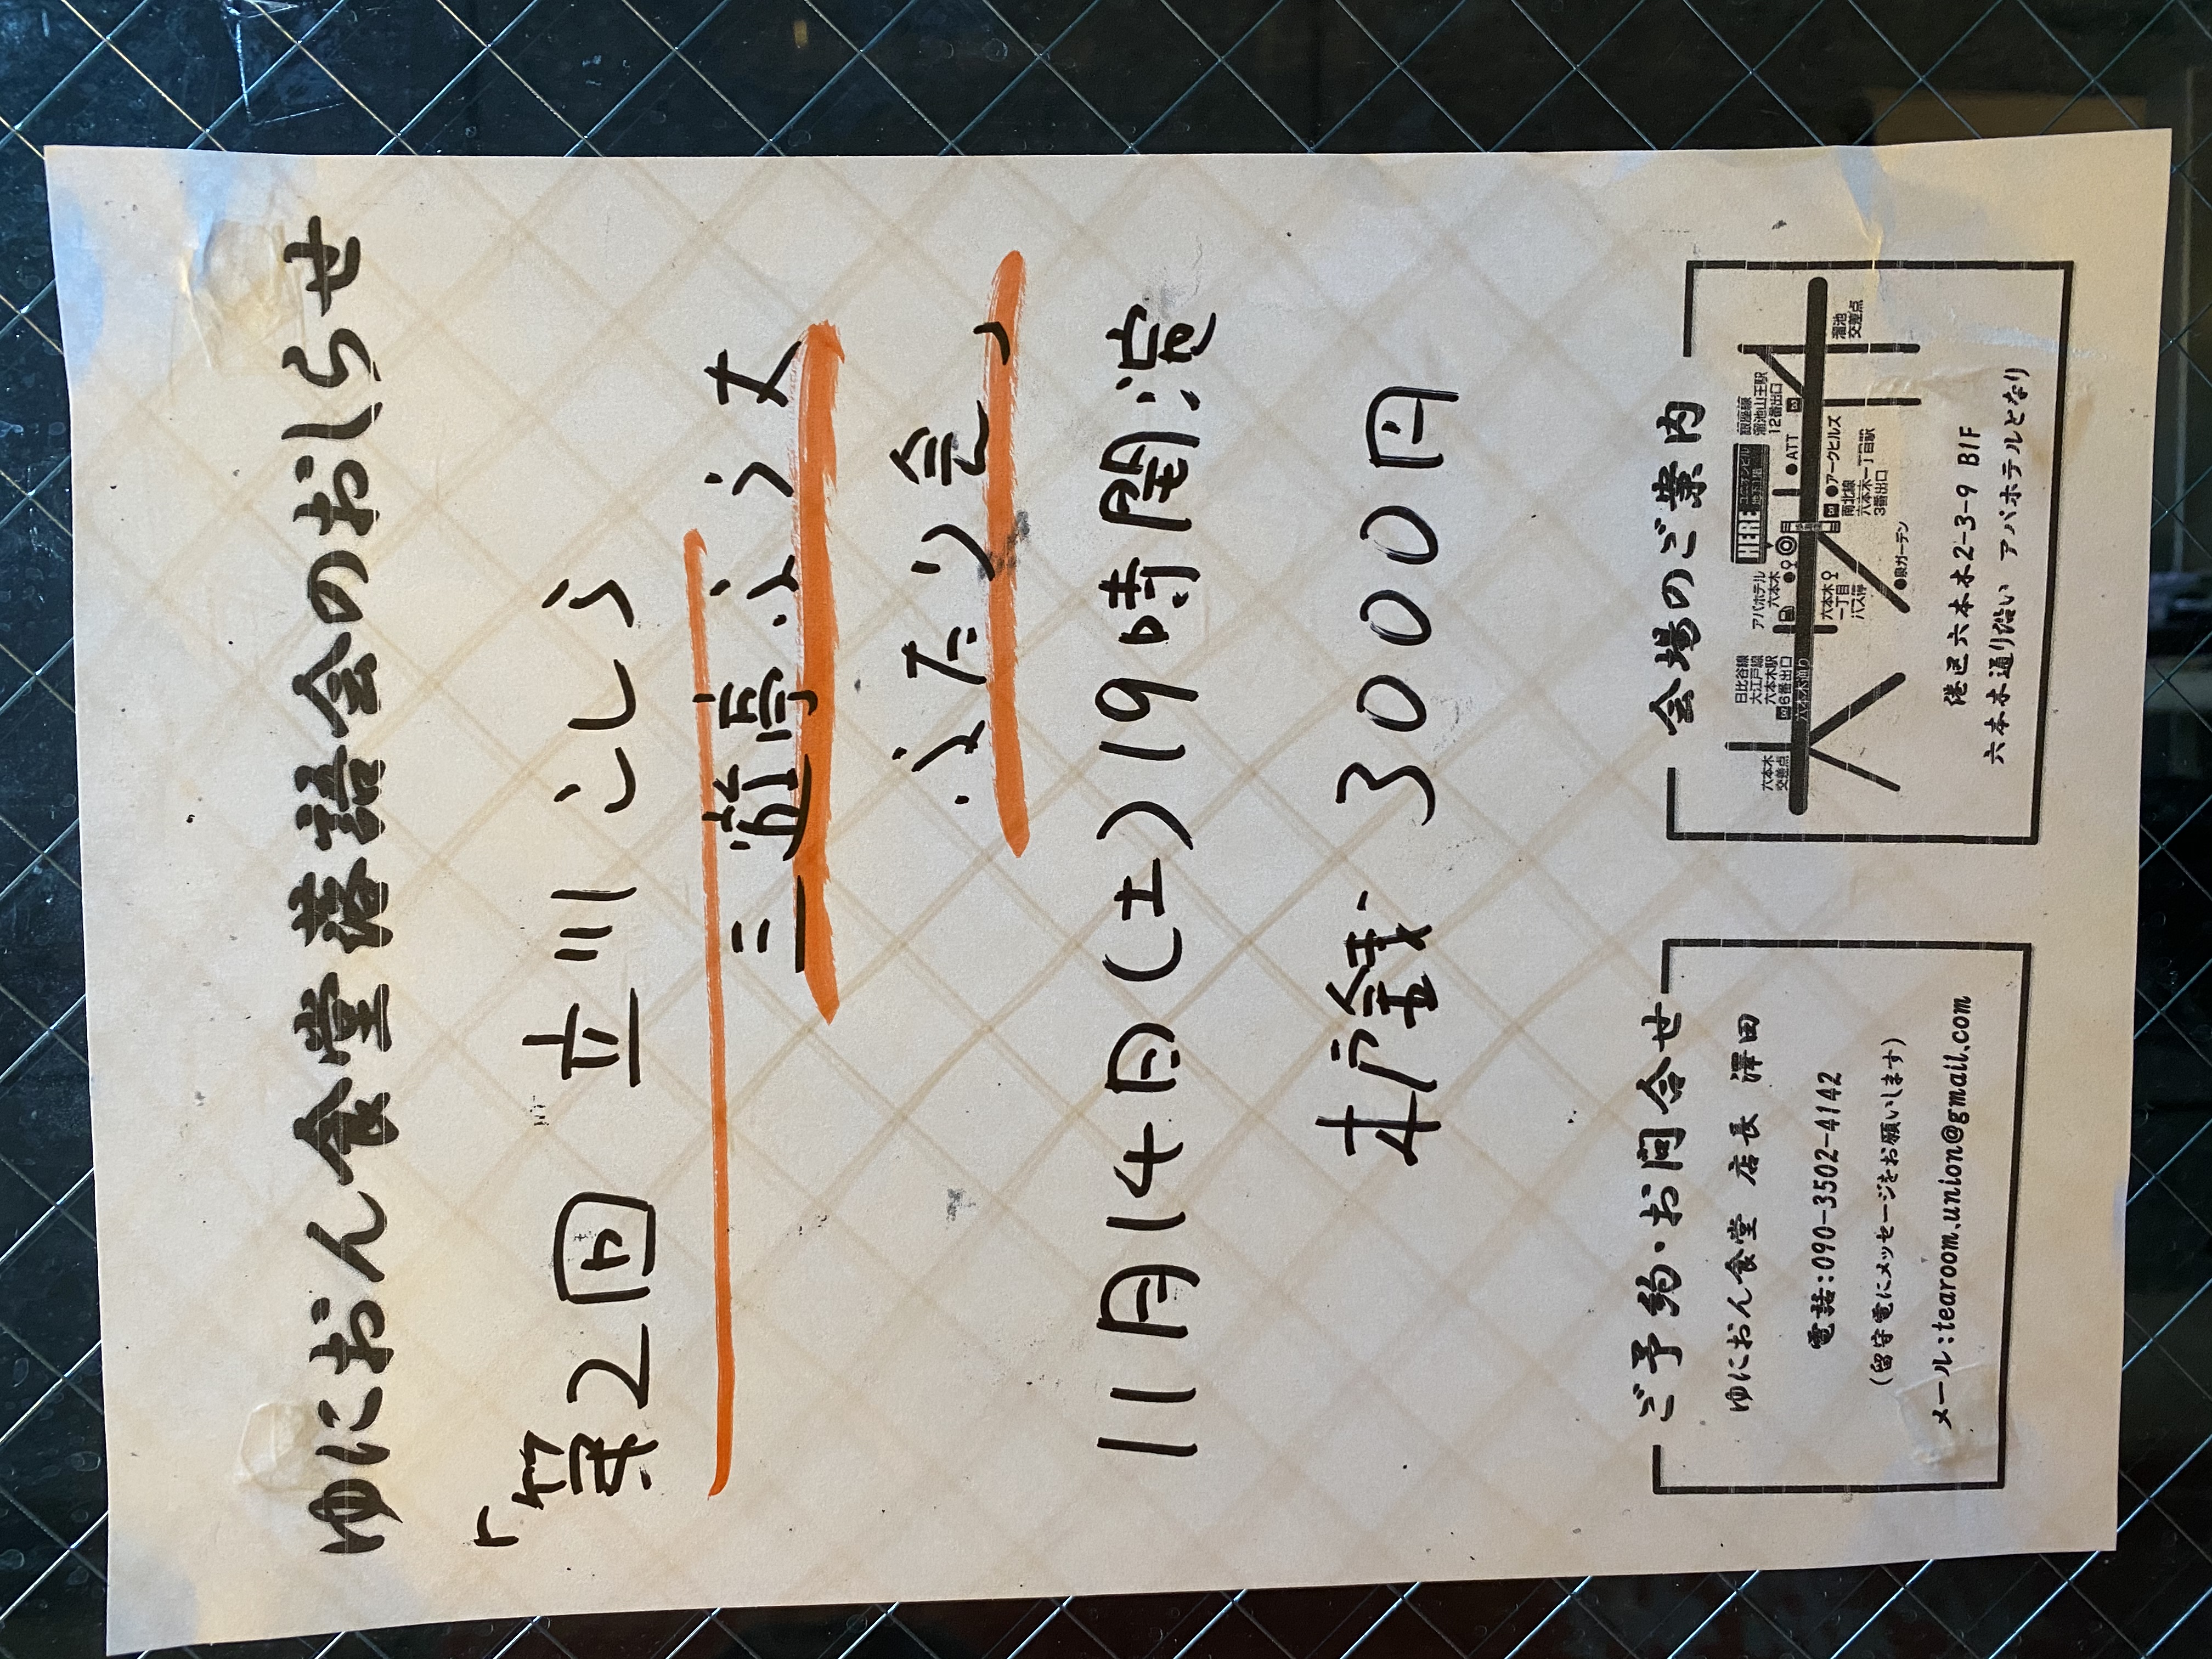 ゆにおん食堂落語会のおしらせ
「第2回 立川こしら
三遊亭ふう丈
ふたり会」
11月14日(土)19時開演
木戸銭 3000円
ご予約・お問合せ
ゆにおん食堂 店長 澤田
電話:090-3502-4142
(留守電にメッセージをお願いします)
メール:tearoom.union@gmail.com
会場のご案内
六本木
交差点
日比谷線
大江戸線
六本木駅
6番出口
六本木通り
アパホテル
六本木
HERE
ATT
銀座線
溜池山王駅
12番出口
六本木
一丁目
バス停
アークヒルズ
南北線
六本木一丁目駅
3番出口
泉ガーデン
溜池
交差点
港区六本木2-3-9 B1F
六本木通り沿い アパホテルとなり